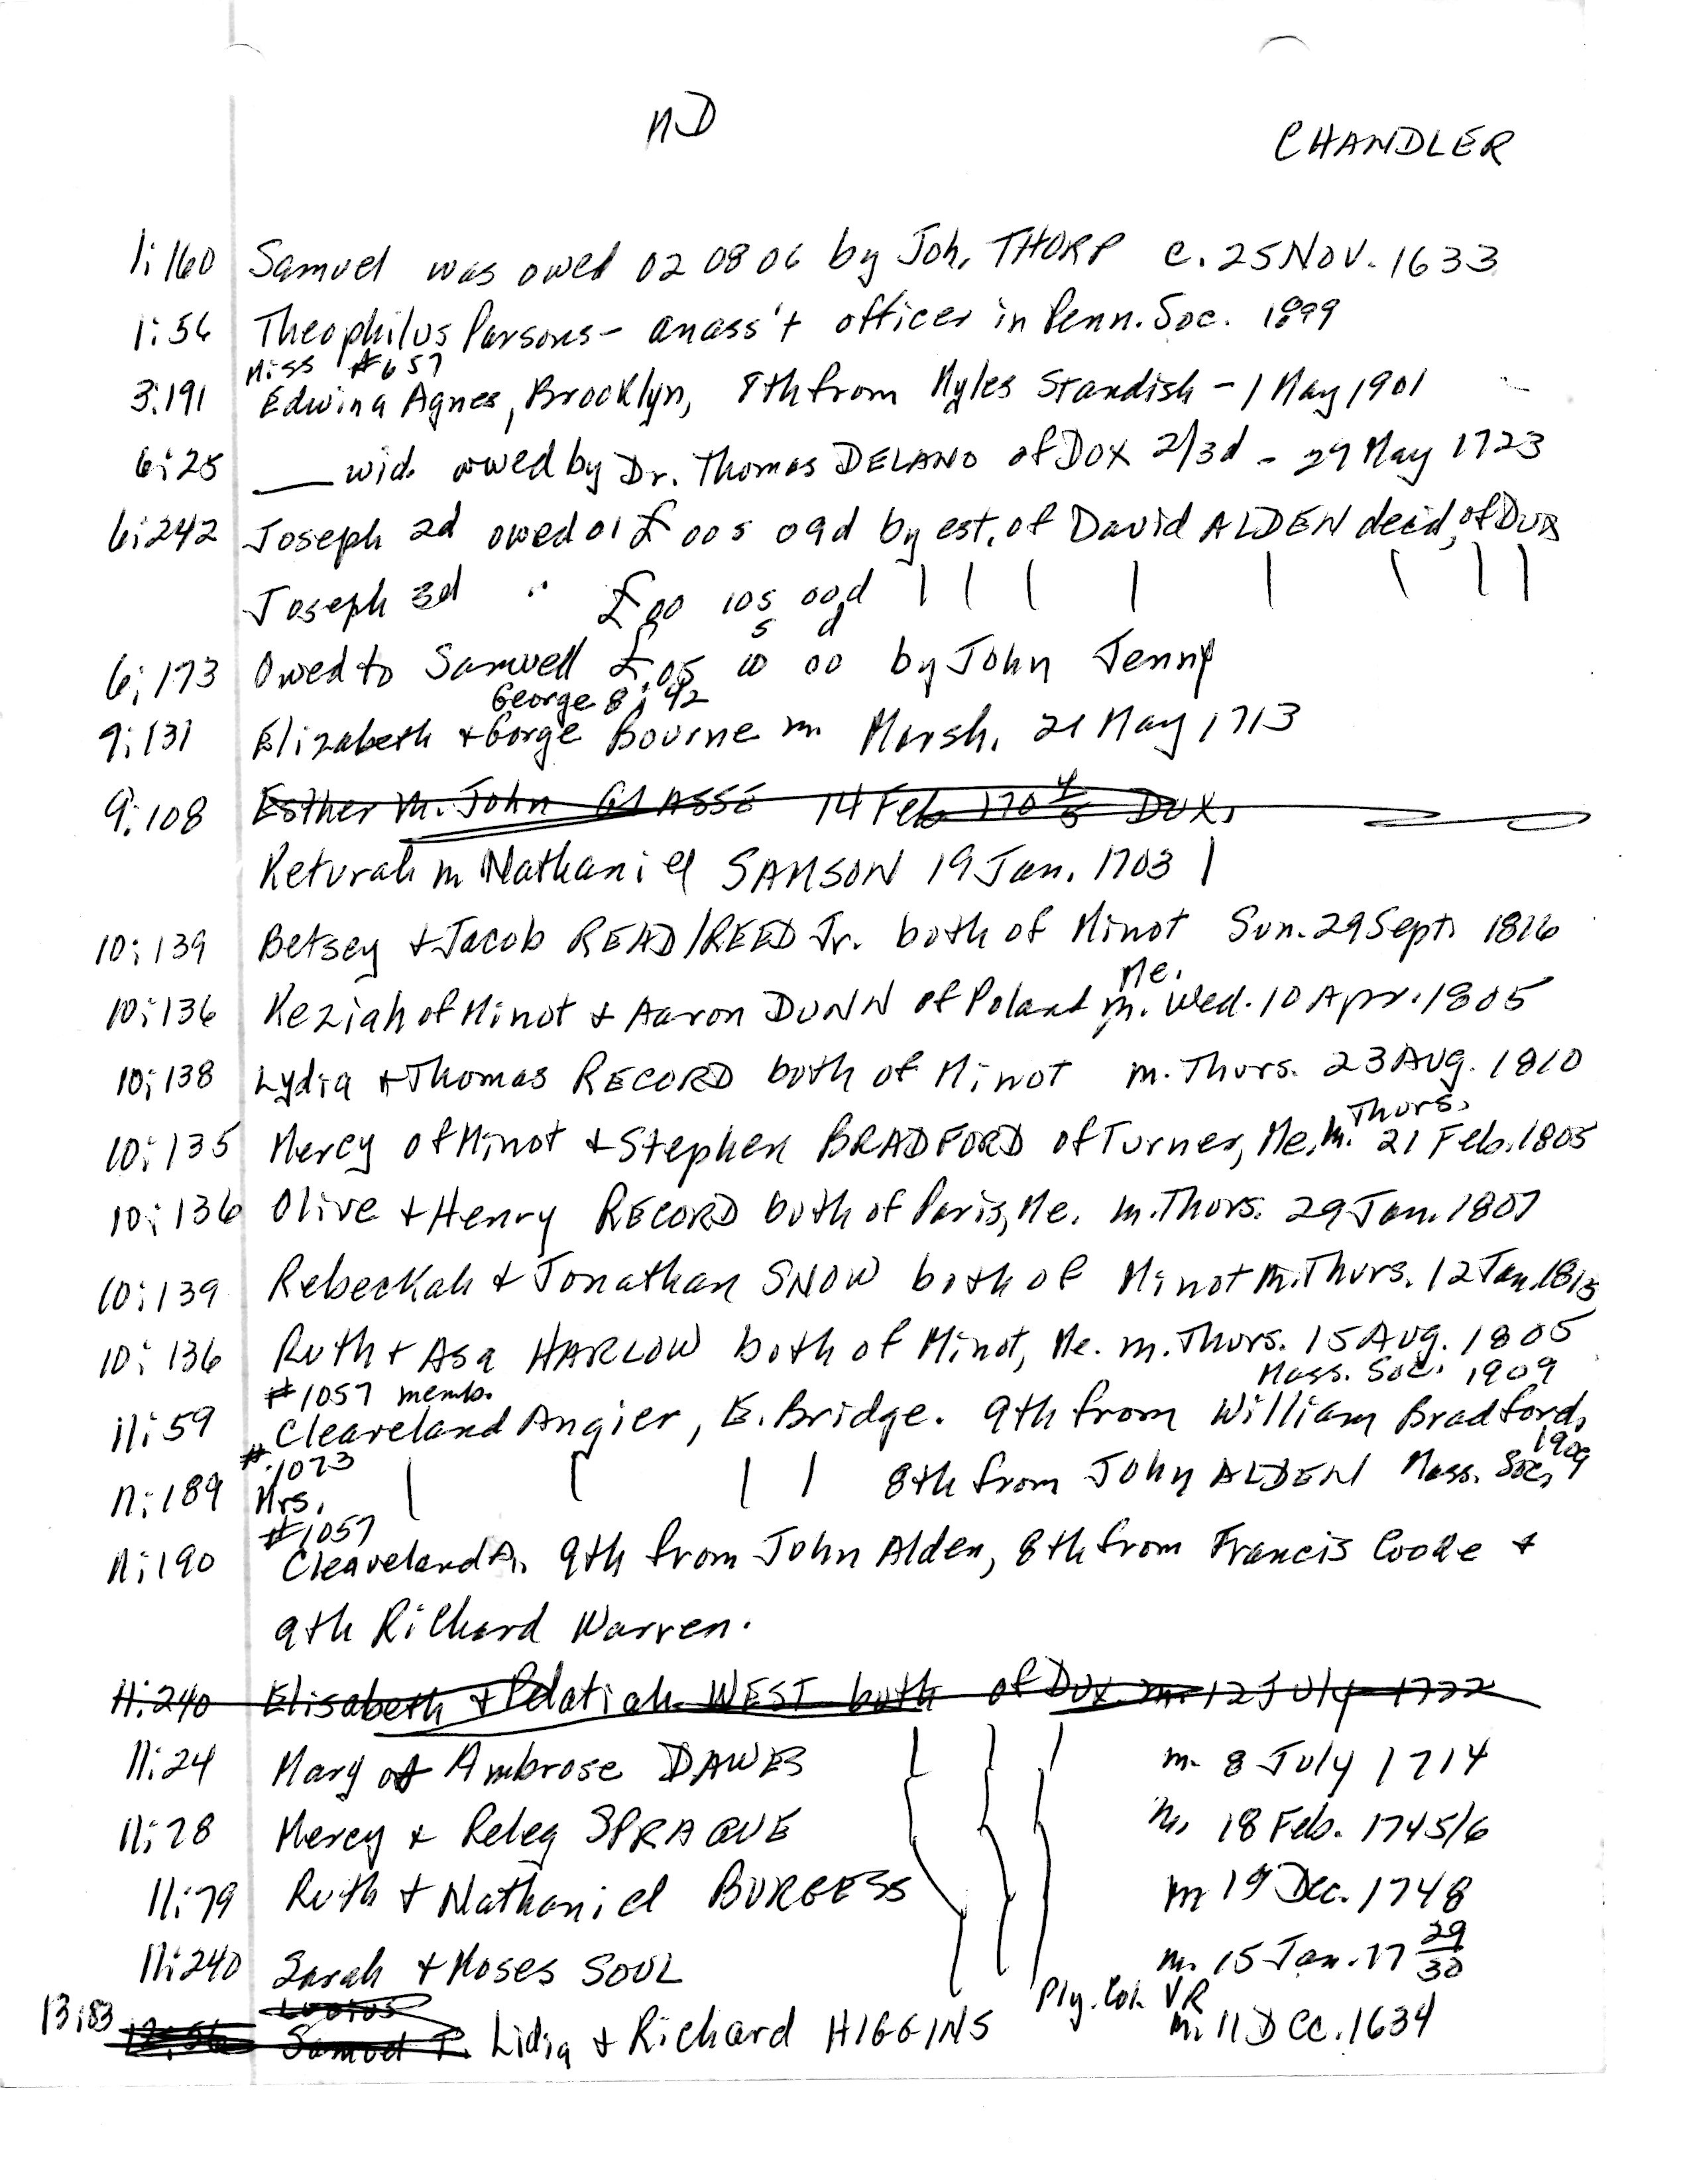 MD
CHANDLER
1:160 Samuel was owed 02 08 06 by Joh. THORP c. 25 Nov. 1633
1:56 Theophilus Parsons - an ass't officer in Penn. Soc. 1899
Miss #657
3:191 Edwina Agnes, Brooklyn, 8th from Myles Standish - 1 May 1901
6:25 ___ wid. owed by Dr. Thomas DELANO of DUX 2/3d - 29 May 1723
6:242 Joseph 2d owed 01 £ 00s 09d by est. of David ALDEN decd, of Dux
Joseph 3d " £00 10s 00d | | | | | | | |
s d
6:173 Owed to Samuell £05 10 00 by John Jenny
George 8:42
9:131 Elizabeth + Gorge Bourne m. Marsh. 21 May 1713
9:108 Esther m. John GLASSE 14 Feb 170 4/5 DUX.
Keturah m Nathaniel SAMSON 19 Jan. 1703 |
10:139 Betsey + Jacob READ/REED Jr. both of Minot Sun. 29 Sept. 1816
Me.
10:136 Keziah of Minot + Aaron DUNN of Poland m. Wed. 10 Apr. 1805
10:138 Lydia + Thomas RECORD both of Minot m. Thurs. 23 Aug. 1810
Thurs.
10:135 Mercy of Minot + Stephen BRADFORD of Turner, Me. m. 21 Feb. 1805
10:136 Olive + Henry RECORD both of Paris, Me. m. Thurs. 29 Jan. 1807
10:139 Rebeckah + Jonathan SNOW both of Minot m. Thurs. 12 Jan. 1815
10:136 Ruth + Asa HARLOW both of Minot, Me. m. Thurs. 15 Aug. 1805
#1057 memb. Mass. Soc. 1909
11:59 Cleaveland Angier, E. Bridge. 9th from William Bradford,
#1073 1909
11:189 Mrs. | | | | 8th from John ALDEN Mass. Soc,
#1057
11:190 Cleaveland A. 9th from John Alden, 8th from Francis Cooke +
9th Richard Warren.
11:240 Elisabeth + Pelatiah WEST both of Dux. m. 12 July 1722
11:24 Mary of Ambrose DAWES | | | m. 8 July 1714
11:78 Mercy + Peleg SPRAGUE m. 18 Feb. 1745/6
11:79 Ruth + Nathaniel BURGESS m 19 Dec. 1748
11:240 Sarah + Moses SOUL m. 15 Jan. 17 29/30
Ply. Col. VR
13:83 Samuel T. Lidia + Richard HIGGINS m. 11 Dec. 1634